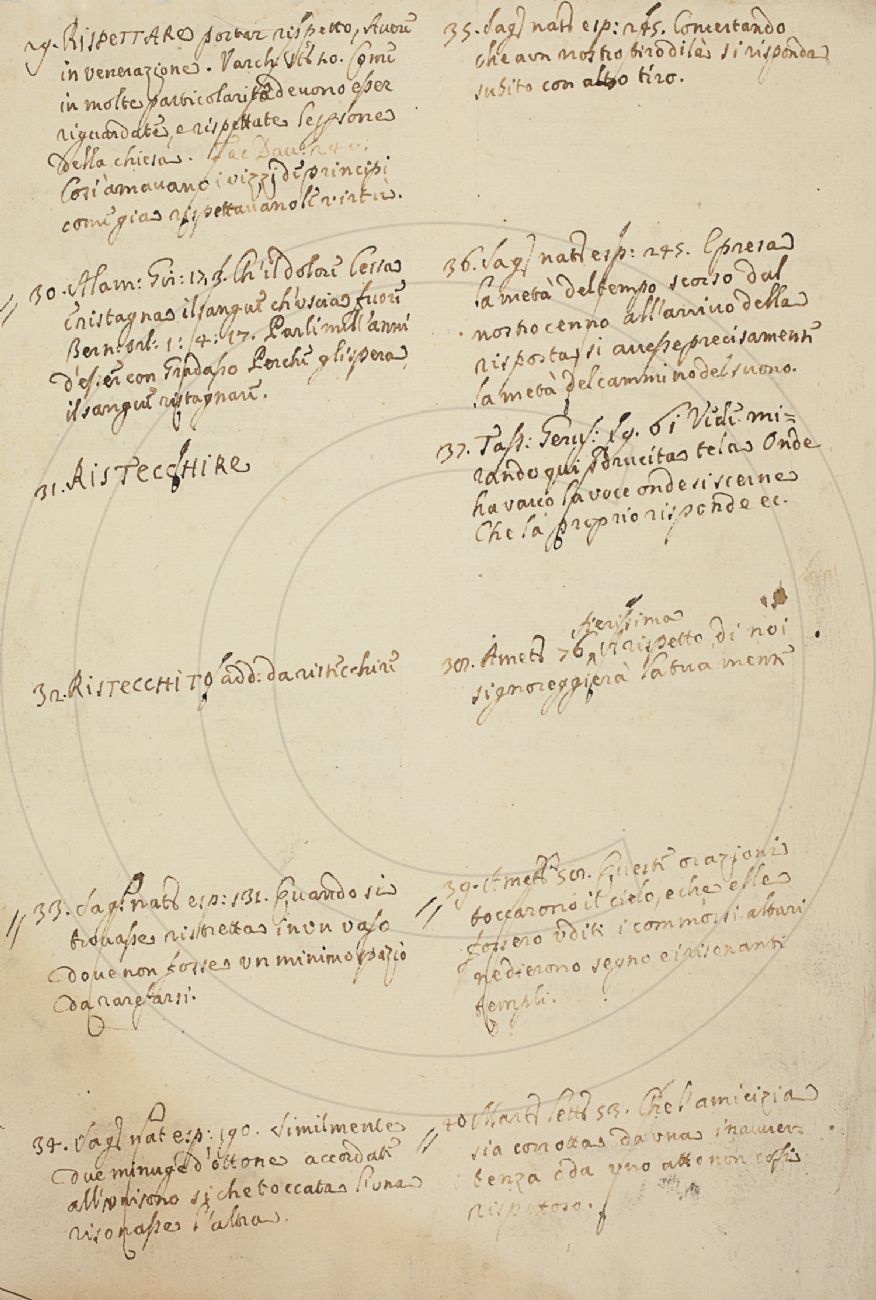 29. RISPETTARE portar rispetto, Avere
in venerazione. Varch. 20. Come
in molte particolarità devono esser
riguardate, e rispettate le persone
della chiesa. Tac Dav:
Così amavano i vizzj de principi
come gia rispettavano le virtù.
// 30. Alam: Gir: Ch'il dolore cessa
E ristagna il sangue ch'uscia fuore
Bern: orl: 1: 4: 17. Parli mill'anni
D'esser con Gradasso Perche gli spera
il sangue ristagnare.
31. RISTECCHIRE
32. RISTECCHITO add: da ristecchire
// 33. Sag: nat: esp: 131. Quando si
trovasse ristretta in un vaso
dove non fosse un minimo spazio
da rarefarsi.
34. Sag: nat: esp: 190. Similmente
due minuge d'ottone accordate
all'unisono si che toccata l'una
risonasse l'altra.
35. Sag: nat: esp: 245. Concertando
che a un nostro tiro di là si risponda
subito con altro tiro.
36. Sag: nat: esp: 245. E presa
la metà del tempo scorso dal
nostro cenno all'arrivo della
risposta si avesse precisamente
la metà del cammino del suono.
37. Tass: Gerus: 19. 61 Vide mi=
rando qui sdrucita tela Onde
ha varco la voce onde si scerne
Che là proprio risponde ec.
38. Amet: 76. Il fierissima rispetto di noi
signoreggierà la tua mente
// 39. Amet: 58. Queste orazioni
toccarono il cielo, e che elle
fossero udite i commossi altari
ne dierono segno e i risonanti
templi.
// 40 Mart: lett: 53. Che l'amicizia
sia corrotta da una inavver-
tenza o da uno atto non così
rispettoso.